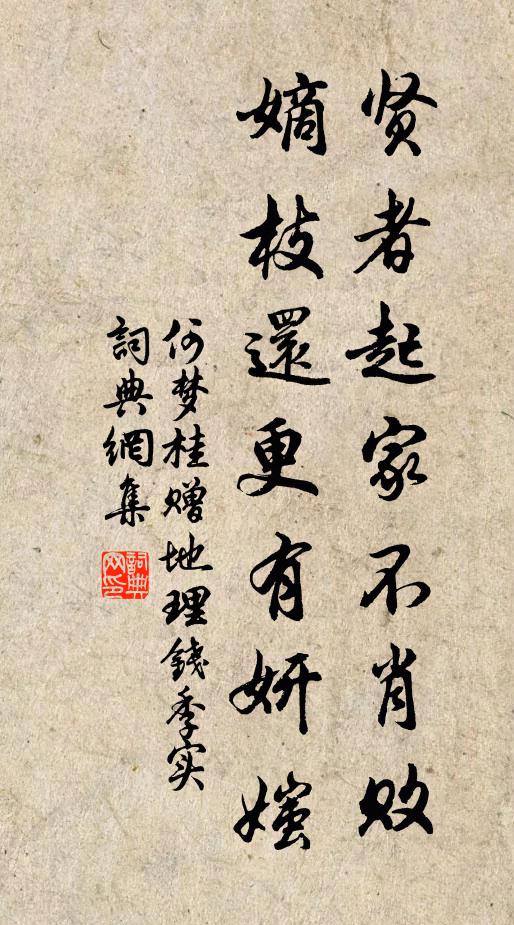 贤者起家不肖败
嫡枝還更有妍媸
何梦桂赠地理錢季实
詞典網集
詞典網印